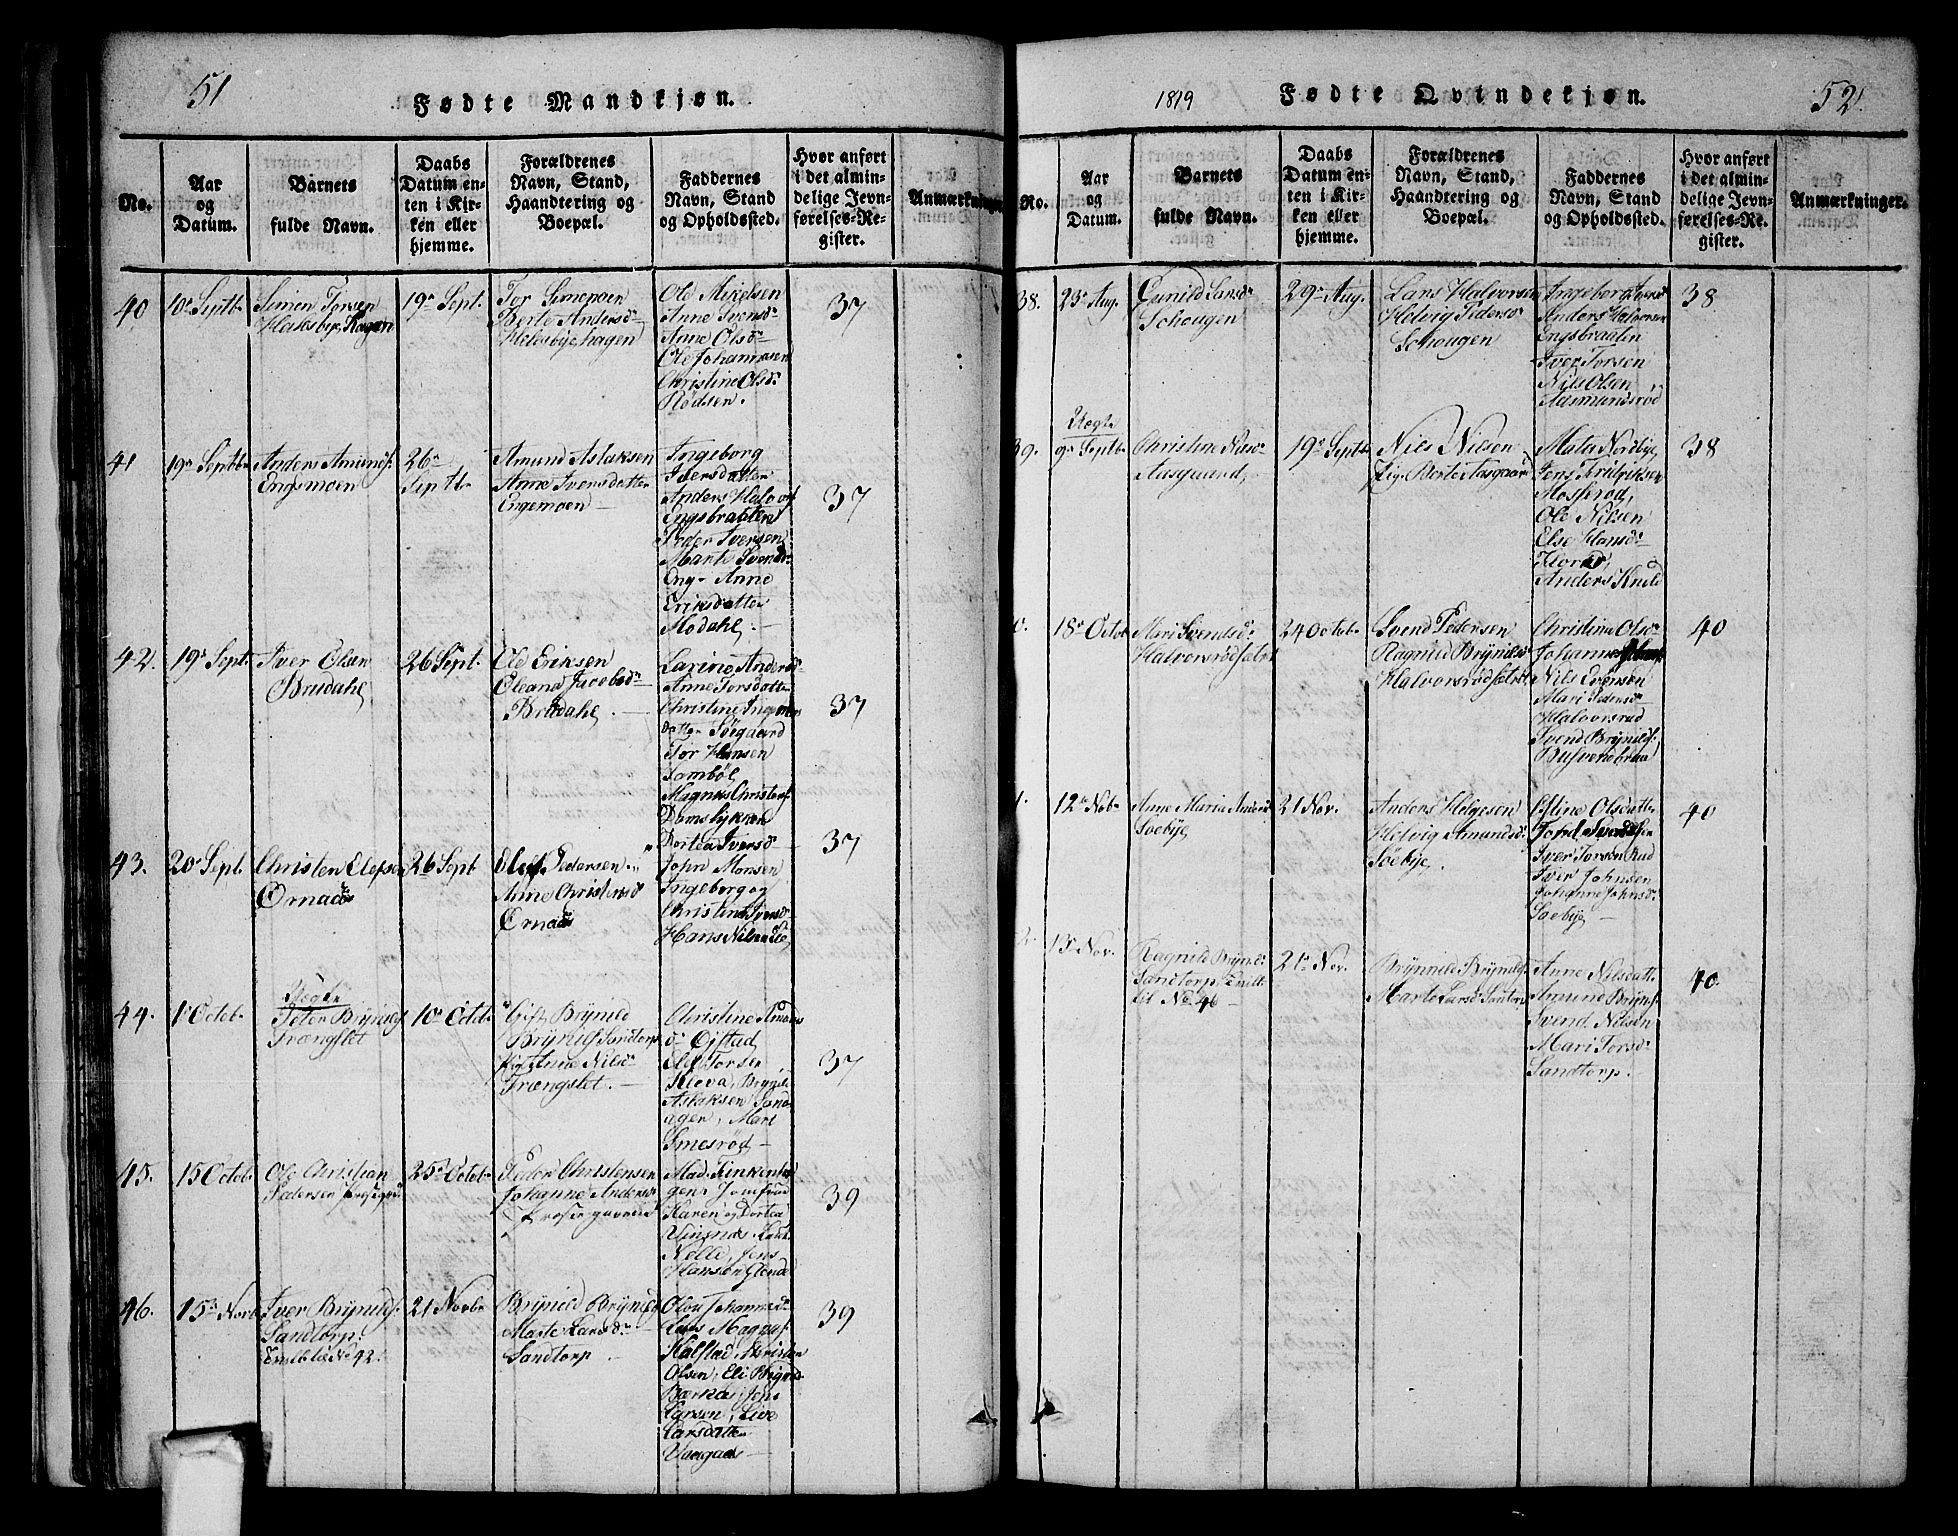 51
Fødte Mandkjøn.
No.
Aar
og
Datum.
Barnets
fulde Navn.
Daabs
Datum en-
ten i Kir-
ken eller
hjemme.
Forældrenes
Navn, Stand,
Haandtering og
Boepæl.
Faddernes
Navn, Stand
og Opholdssted.
Hvor anført
i det almin-
delige Jevn-
førelses-Re-
gister.
Anmærkninger
40
10de Septb.
Simen Torsen
19de Sept.
Tor Simensen
Berte Andersd.
Ole Mikelsen
Anne Svensd.
Anne Olsd.
Ole Johannesen
Christine Olsd.
Rødsen.
37
41
19de Septb.
Anders Amunds.
Engsmoen
26de
Septb.
Amund Aslaksen
Anne Svensdatter
Engemoen
Ingeborg
Iversdatter
Anders Halvors.
Engsbraaten
Peder Iversen
Marte Svensd.
Eng- Anne
Eriksdatter
Modahl.
37
42.
19de Sept.
Iver Olsen
Brudahl
26 Sept.
Ole Eriksen
Oleana Jacobsd.
Brudahl.
Larine Andersd.
Anne Torsdatter
Christine
datter Søegaard
Tor Hansen
Tambøl
Magnus Christens.
Damslykken
Dortea Iversd.
37
43.
20 Sept.
Christen Elefsen
26 Sept
Elef Pedersen
Anne Christensd.
John Monsen
Ingeborg og
Christine Iversd.
37
44.
1 Octob.
Uegte
Peter Brynilds.
Trængslet
10de Octob.
Gift. Brynild
Brynilds. Sandtorp
Pig. Anne Nilsd.
Trængslet.
Christine
Elef Torsen
Kløva, Brynild
Aslaksen
Mari
Smesrød
37
45.
15 Octob.
Ole Christian
Pedersen
25de Octob.
Peder Christensen
Johanne Andersd.
Jomfru
Karen og Dortea
Jens
Hansen Glende
39
46.
15de Novb.
Iver Brynilds.
Sandtorp.
Tvilb. til No 42.
21 Novb.
Brynild Brynilds.
Marte Larsd.
Sandtorp.
Johannesd.
Lars Magnus.
Kalstad
Olsen, Eli
Jens
Larsen, Live
Larsdatter
39
1819
Fødte Qvindekjøn.
52.
No.
Aar
og
Datum.
Barnets
fulde Navn.
Daabs
Datum en-
ten i Kir-
ken eller
hjemme.
Forældrenes
Navn, Stand,
Haandtering og
Boepæl.
Faddernes
Navn, Stand
og Opholdssted.
Hvor anført
i det almin-
delige Jevn-
førelses-Re-
gister.
Anmærkninger.
38.
23de Aug.
Gunild Larsd.
Schougen
29de Aug.
Lars Halvorsen
Helvig Pedersd.
Schougen
Ingeborg
Anders Halvorsen
Engsbraaten
Iver Torsen
Nils Olsen
Aasmundsrød
38.
39.
Uegte
9de Septb.
Christine Nilsd.
Aasgaard,
19de Septb.
Nils Nilsen
Pig. Berte Aasgaard
Mata Nordbye,
Jens Fridriksen
Mosserød,
Ole Nilsen
Else Hansd.
Anders Knild
38
0.
18de Octob.
Mari Svendsd.
Halvorsrødfaldet
24 Octob.
Svend Pedersen
Ragnild Brynilsd.
Halvorsrødfaldet
Christine Olsd.
Johannes
Nils Evensen
Mari Pedersd.
Halvorsrud
Svend Brynilds.
40
1.
12de Nob.
Anne Maria Andersd.
Soebye,
21 Nov.
Anders Helgesen
Helvig Amundsd.
Søebye.
Olsdatter
Iver Torsen Rud
Iver Johnsen
Johanne Johnsd.
Soebye
40
2.
15 Nov.
Ragnild Brynilds.
Sandtorp. Tvill.
til No. 46
21de Nov.
Brynnild Brynilds.
Marte Larsd. Sandtorp
Anne Nilsdatt.
Amund Brynilds.
Svend Nilsen
Mari Torsd.
Sandtorp.
40.